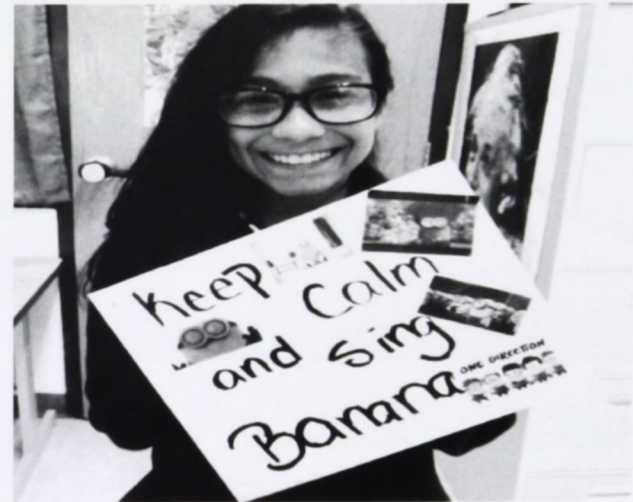 Keep
Calm
and Sing
Banana
ONE DIRECTION